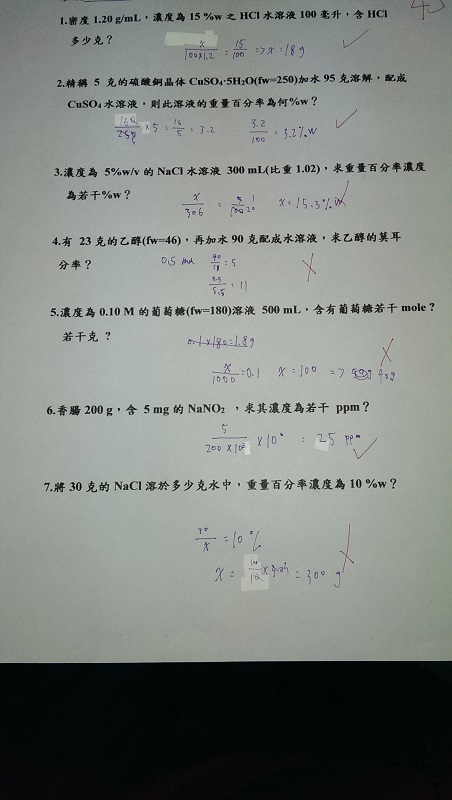 43
1.密度 1.20 g/mL，濃度為 15 %w 之 HCl 水溶液 100 毫升，含 HCl
多少克？
x/100×1.2 = 15/100 => x = 18 g
2.精稱 5 克的硫酸銅晶體 CuSO₄·5H₂O(fw=250)加水 95 克溶解，配成
CuSO₄ 水溶液，則此溶液的重量百分率為何%w？
160/250 × 5 = 16/5 = 3.2 3.2/100 = 3.2% w
3.濃度為 5%w/v 的 NaCl 水溶液 300 mL(比重 1.02)，求重量百分率濃度
為若干%w？
x/306 = 5 1/100 20 x = 15.3% w
4.有 23 克的乙醇(fw=46)，再加水 90 克配成水溶液，求乙醇的莫耳
分率？ 0.5 mol 90/18 = 5
0.5/5.5 = 11
5.濃度為 0.10 M 的葡萄糖(fw=180)溶液 500 mL，含有葡萄糖若干 mole？
若干克 ？ 0.1×180=1.8g
x/1000 = 0.1 x = 100 => 90g
6.香腸 200 g，含 5 mg 的 NaNO₂ ，求其濃度為若干 ppm？
5/200×10³ ×10⁶ = 25 ppm
7.將 30 克的 NaCl 溶於多少克水中，重量百分率濃度為 10 %w？
30/x = 10%
x = = 300 g